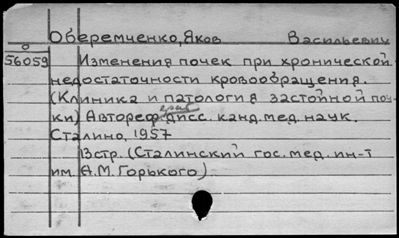 Оберемченко, Яков Васильевич
56059 Изменения почек при хронической
недостаточности кровообращения.
(Клиника и патология застойной поч-
ки) Автореф. дисс. канд. мед. наук.
Сталино, 1957
13 стр. (Сталинский гос. мед. ин-т
им. А. М. Горького).